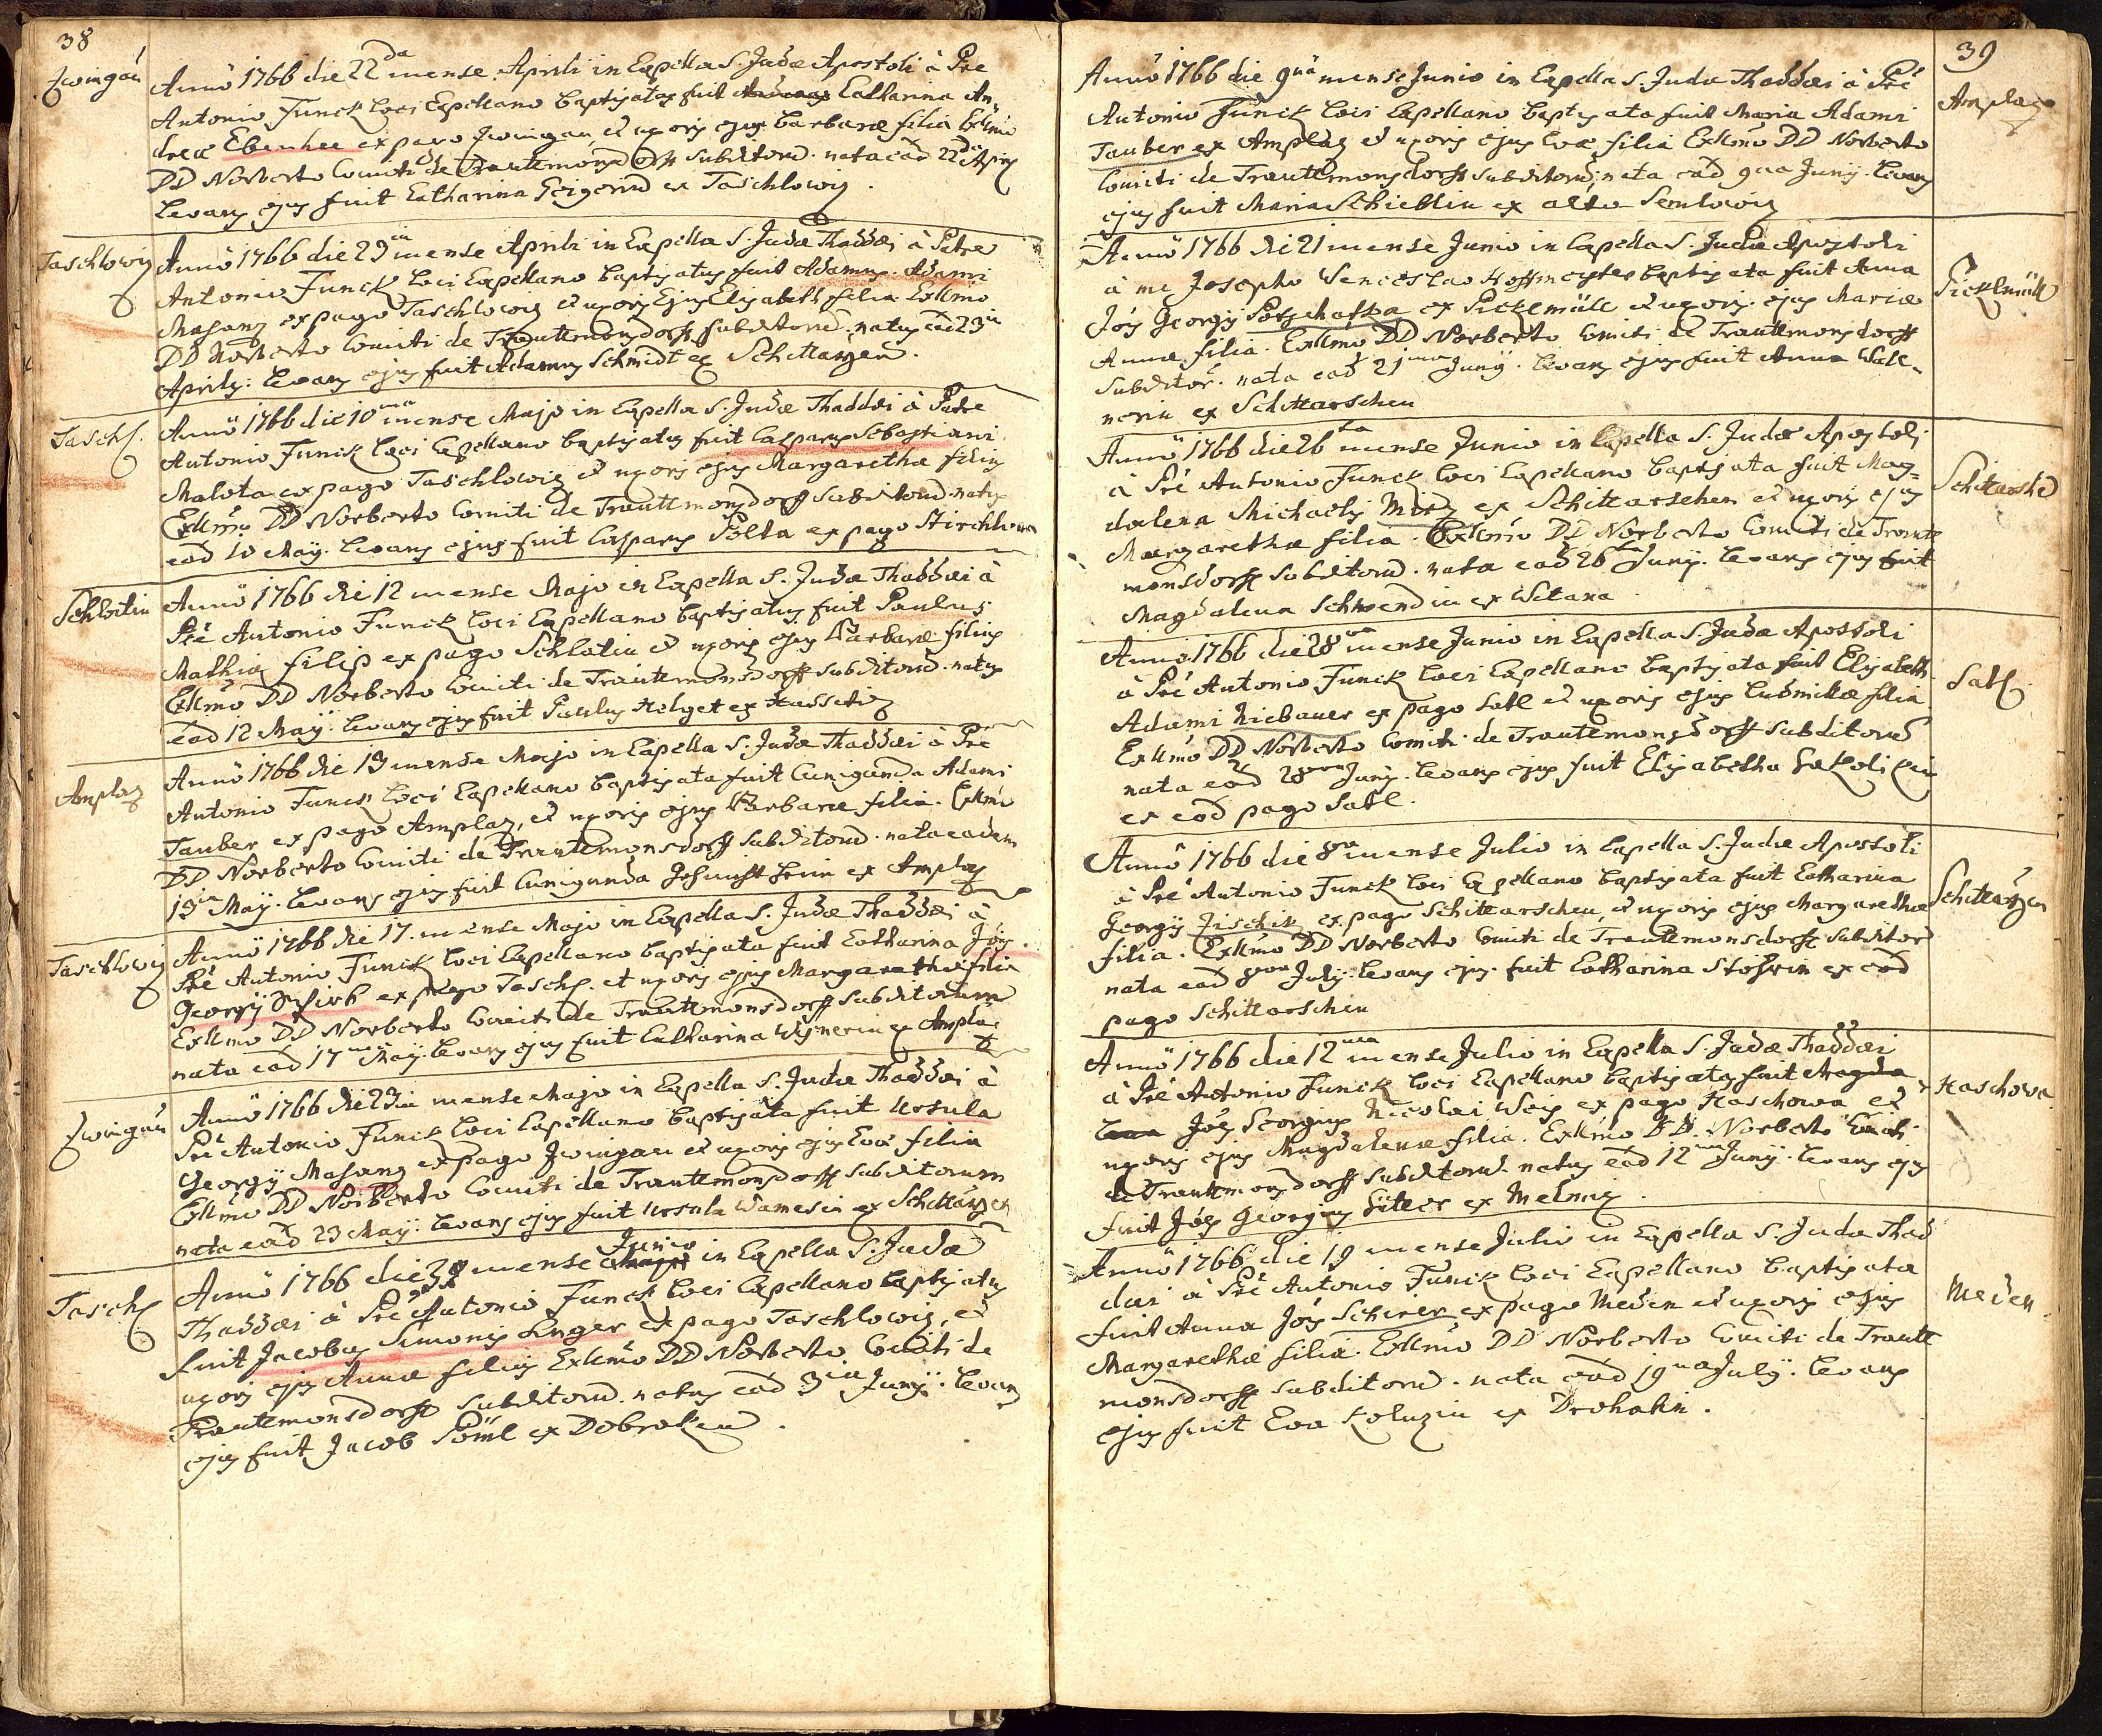 38
Zwingau
Anno 1766 die 22da mense Aprili in Capella S. Judæ Apostoli à Pre
Antonio Funck loci Capellano baptisatus fuit Catharina An¬
dreæ Ebenhee ex pago Zwingau et uxoris ejus Barbaræ filia Exllmo
DD Norberto Comiti de Trauttmonsdorff subditorum. nata eâd 22dâ Aprilis
levans ejus fuit Catharina Geigerin ex Taschlowiz.
Taschlowiz
Anno 1766 die 23ia mense Aprili in Capella S. Judæ Thaddæi à Patre
Antonio Funck loci Capellano baptisatus fuit Adamus. Adami
Masanz ex pago Taschlowiz et uxoris Ejus Elisabeth filia Exllmo
DD Norberto Comiti de Trauttmonsdorff subditorum. natus eâd 23ia
Aprilis: levans ejus fuit Adamus Schmidt ex Schittarzen.
Taschl.
Anno 1766 die 10ma mense Majo in Capella S. Judæ Thaddæi à Patre
Antonio Funck loci Capellano baptisatus fuit Casparus Sebastiani
Malota ex pago Taschlowiz et uxoris ejus Margarethæ filius
Exllmo DD Norberto Comiti de Trauttmonsdorff subditorum. natus
eâd 10 Maÿ. levans ejus fuit Casparus Polta ex pago Stirchlowa
Schlatin
Anno 1766 die 12 mense Majo in Capella S. Judæ Thaddæi à
Pre Antonio Funck loci Capellano baptisatus fuit Paulus
Mathiæ Filip ex pago Schlatin et uxoris ejus Barbaræ filius
Exllmo DD Norberto Comiti de Trauttmonsdorff subditorum. natus
eâd 12 Maÿ. levans ejus fuit Paulus Helget ex Hassatiz
Amplaz
Anno 1766 die 13 mense Majo in Capella S. Judæ Thaddæi à Pre
Antonio Funck loci Capellano baptisata fuit Cunigunda Adami
Tauber ex pago Amplaz, et uxoris ejus Barbaræ filia. Exllmo
DD Norberto Comiti de Trauttmonsdorff subditorum. nata eadem
13ia Maÿ. levans ejus fuit Cunigunda ex Amplaz
Taschlowiz
Anno 1766 die 17. mense Majo in Capella S. Judæ Thaddæi à
Pre Antonio Funck loci Capellano baptisata fuit Catharina Jois
Georgÿ ex pago Taschl. et uxoris ejus Margarethæ filia
Exllmo DD Norberto Comiti de Trauttmonsdorff subditorum
nata eâd 17ma Maÿ. levans ejus fuit Catharina Wisnerin ex Amplaz
Zwingau
Anno 1766 die 23ia mense Majo in Capella S. Judæ Thaddæi à
Pre Antonio Funck loci Capellano baptisata fuit Ursula
Georgÿ Masanz ex pago Zwingau et uxoris ejus Evæ filia
Exllmo DD Norberto Comiti de Trauttmonsdorff subditorum
nata eâd 23 Maÿ. levans ejus fuit Ursula Wamesin ex Schittarzen
Taschl
Anno 1766 die 3 mense Junio in Capella S. Judæ
Thaddæi à Pre Antonio Funck loci Capellano baptisatus
fuit Jacobus Simonis Unger ex pago Taschlowiz, et
uxoris ejus Annæ filius Exllmo DD Norberto Comiti de
Trauttmonsdorff subditorum. natus eâd 3ia Junÿ. levans
ejus fuit Jacob Pöml ex Dobraken.
39
Amplaz
Anno 1766 die 9nâ mense Junio in Capella S. Judæ Thaddæi à Pre
Antonio Funck loci Capellano baptisata fuit Maria Adami
Tauber ex Amplaz et uxoris ejus Evæ filia Exllmo DD Norberto
Comiti de Trauttmonsdorff subditorum, nata eâd 9na Junÿ. levans
ejus fuit Maria Schieblin ex alto Semlowiz
Picklmüll
Anno 1766 die 21 mense Junio in Capella S. Judæ Apostoli
à me Josepho Wenceslao Hoffmeyster baptisata fuit Anna
Jois Georgÿ Potschafka ex Picklmüll et uxoris ejus Mariæ
Annæ filia. Exllmo DD Norberto Comiti de Trauttmonsdorff
subditor. nata eâd 21ma Junÿ. levans ejus fuit Anna Wall¬
nerin ex Schittarschen
Schittarshē
Anno 1766 die 26ta mense Junio in Capella S. Judæ Apostoli
à Pre Antonio Funck loci Capellano baptisata fuit Mag¬
dalena Michaelis ex Schittarschen et uxoris ejus
Margarethæ filia. Exllmo DD Norberto Comiti de Trautt
monsdorff subditorum. nata eâd 26ta Junÿ. levans ejus fuit
Magdalena Schwendin ex Witana
Satl.
Anno 1766 die 28va mense Junio in Capella S. Judæ Apostoli
à Pre Antonio Funck loci Capellano baptisata fuit Elisabeth
Adami Niebauer ex pago Satl et uxoris ejus Ludmillæ filia
Exllmo DD Norberto Comiti de Trautemonsdorff subditorum
nata eâd 28va Junÿ. levans ejus fuit Elisabetha
ex eod pago Satl.
Schittarzen
Anno 1766 die 8va mense Julio in Capella S. Judæ Apostoli
à Pre Antonio Funck loci Capellano baptisata fuit Catharina
Georgÿ Zischik ex pago Schittarschen, et uxoris ejus Margarethæ
filia. Exllmo DD Norberto Comiti de Trautemonsdorff subditor
nata eâd 8va Julÿ. levans ejus fuit Catharina Stöhrin ex eod
pago Schittarschen
Haschowa
Anno 1766 die 12ma mense Julio in Capella S. Judæ Thaddæi
à Pre Antonio Funck loci Capellano baptisatus fuit Magda
lena Jois Georgius Nicolai Weis ex pago Haschowa et
uxoris ejus Magdalenæ filia. Exllmo DD. Norberto Comiti
de Trauttmonsdorff subditorum. natus eâd 12ma Junÿ. levans ejus
fuit Jois Georgius Sitter ex Melmiz.
Meden
Anno 1766 die 19 mense Julio in Capella S. Judæ Thad
dæi à Pre Antonio Funck loci Capellano baptisata
fuit Anna Jois Schirer ex pago Meden et uxoris ejus
Margarethæ filia. Exllmo DD Norberto Comiti de Trautt
monsdorff subditorum. nata eâd 19na Julÿ. levans
ejus fuit Eva Koluzin ex Drohatin.